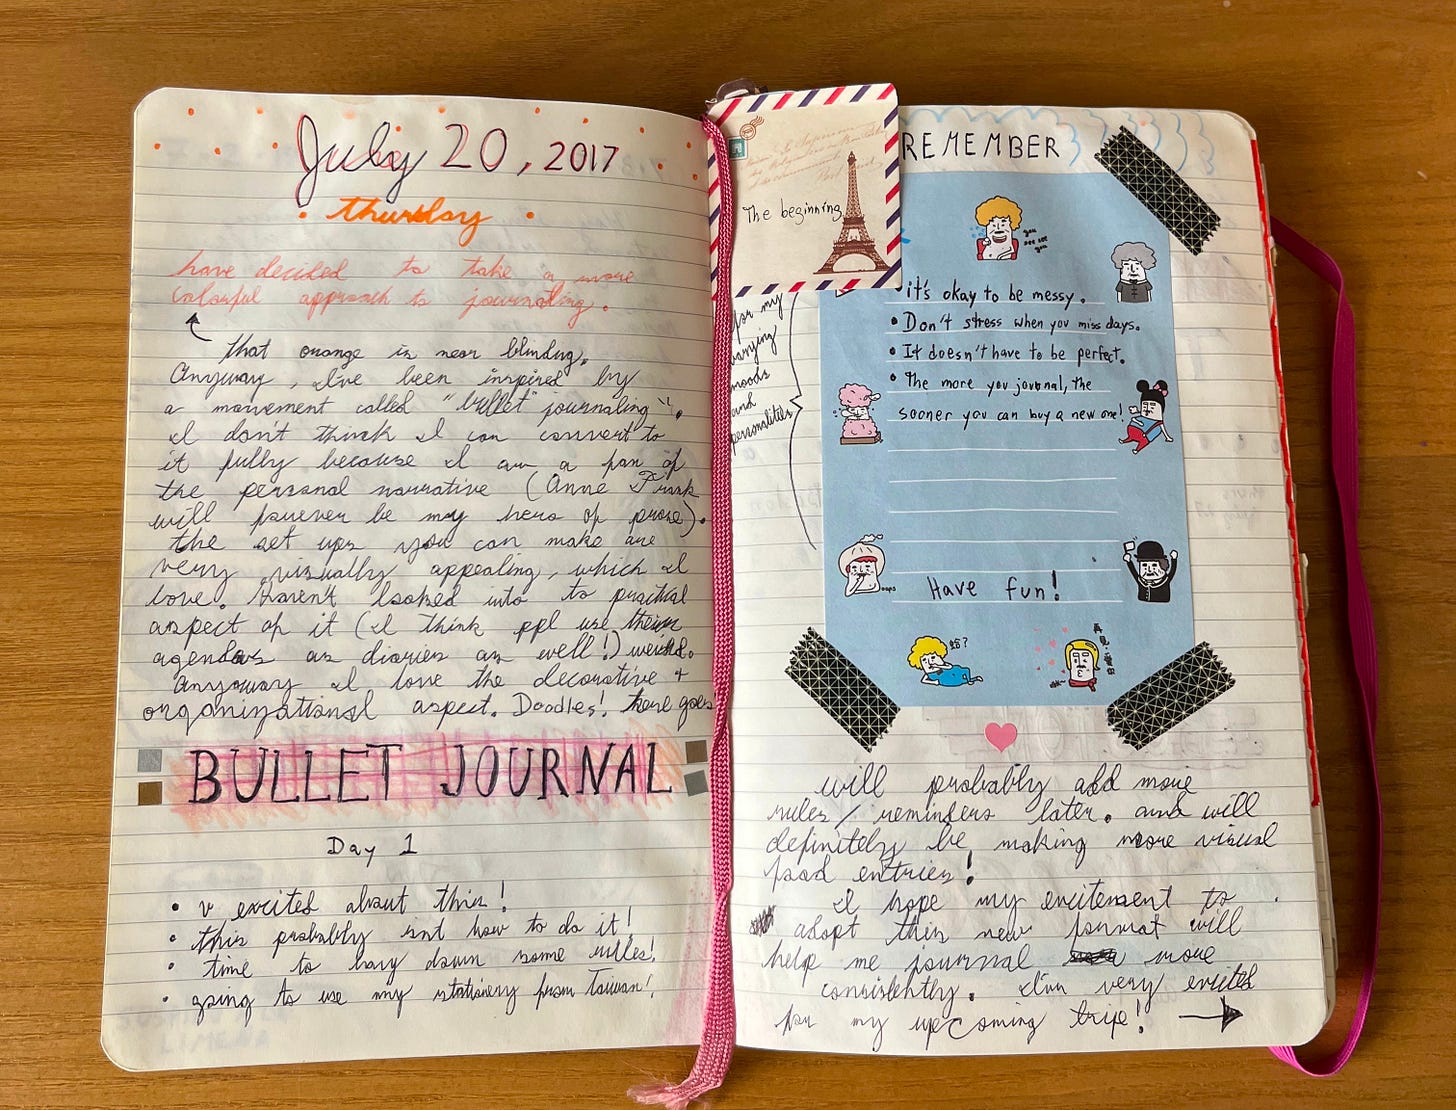 July 20, 2017
thursday
have decided to take a more
colorful approach to journaling.
that orange is near blinding.
Anyway, I've been inspired by
a movement called "bullet" journaling".
I don't think I can convert to
it fully because I am a fan of
the personal narrative (Anne Frank
will forever be my hero of prose).
the set ups you can make are
very visually appealing, which I
love. Haven't looked into to practical
aspect of it (I think ppl use their
agendas as diaries as well!) weird.
Anyway I love the decorative +
organizational aspect. Doodles! here goes
BULLET JOURNAL
Day 1
• v excited about this!
• this probably isnt how to do it!
• time to lay down some rules!
• going to use my stationery from Taiwan!
The beginning
REMEMBER
for my
varying
moods
and
personalities
you
see see
you
• it's okay to be messy.
• Don't stress when you miss days.
• It doesn't have to be perfect.
• The more you journal, the
sooner you can buy a new one!
oops
Have fun!
蛤?
再見,愛人
will probably add more
rules/reminders later. and will
definitely be making more visual
food entries!
I hope my excitement to
adopt this new format will
help me journal more
consistently. I'm very excited
for my upcoming trip!